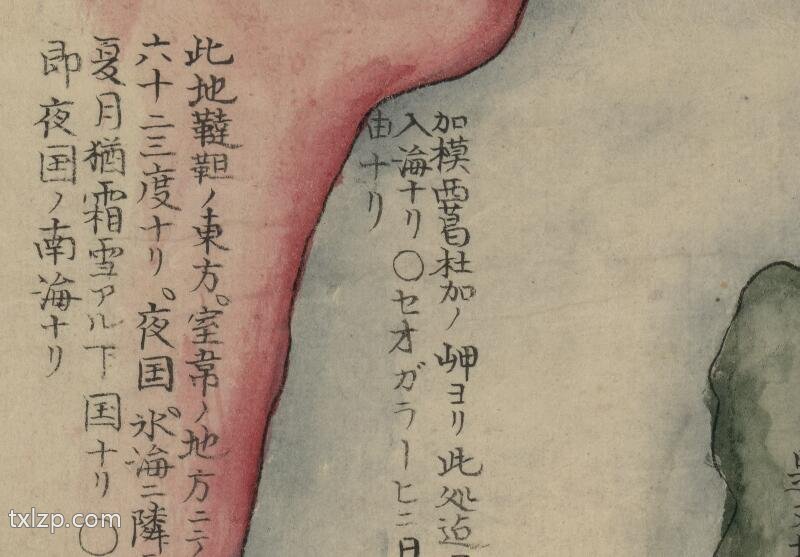 加模西葛杜加ノ岬ヨリ此処迠
入海ナリ〇セオガラーヒニ日
由ナリ
此地韃靼ノ東方。室韋ノ地方ニテ
六十二三度ナリ。夜国。氷海ニ隣
夏月猶霜雪アル下国ナリ〇
即夜国ノ南海ナリ
txlzp.com